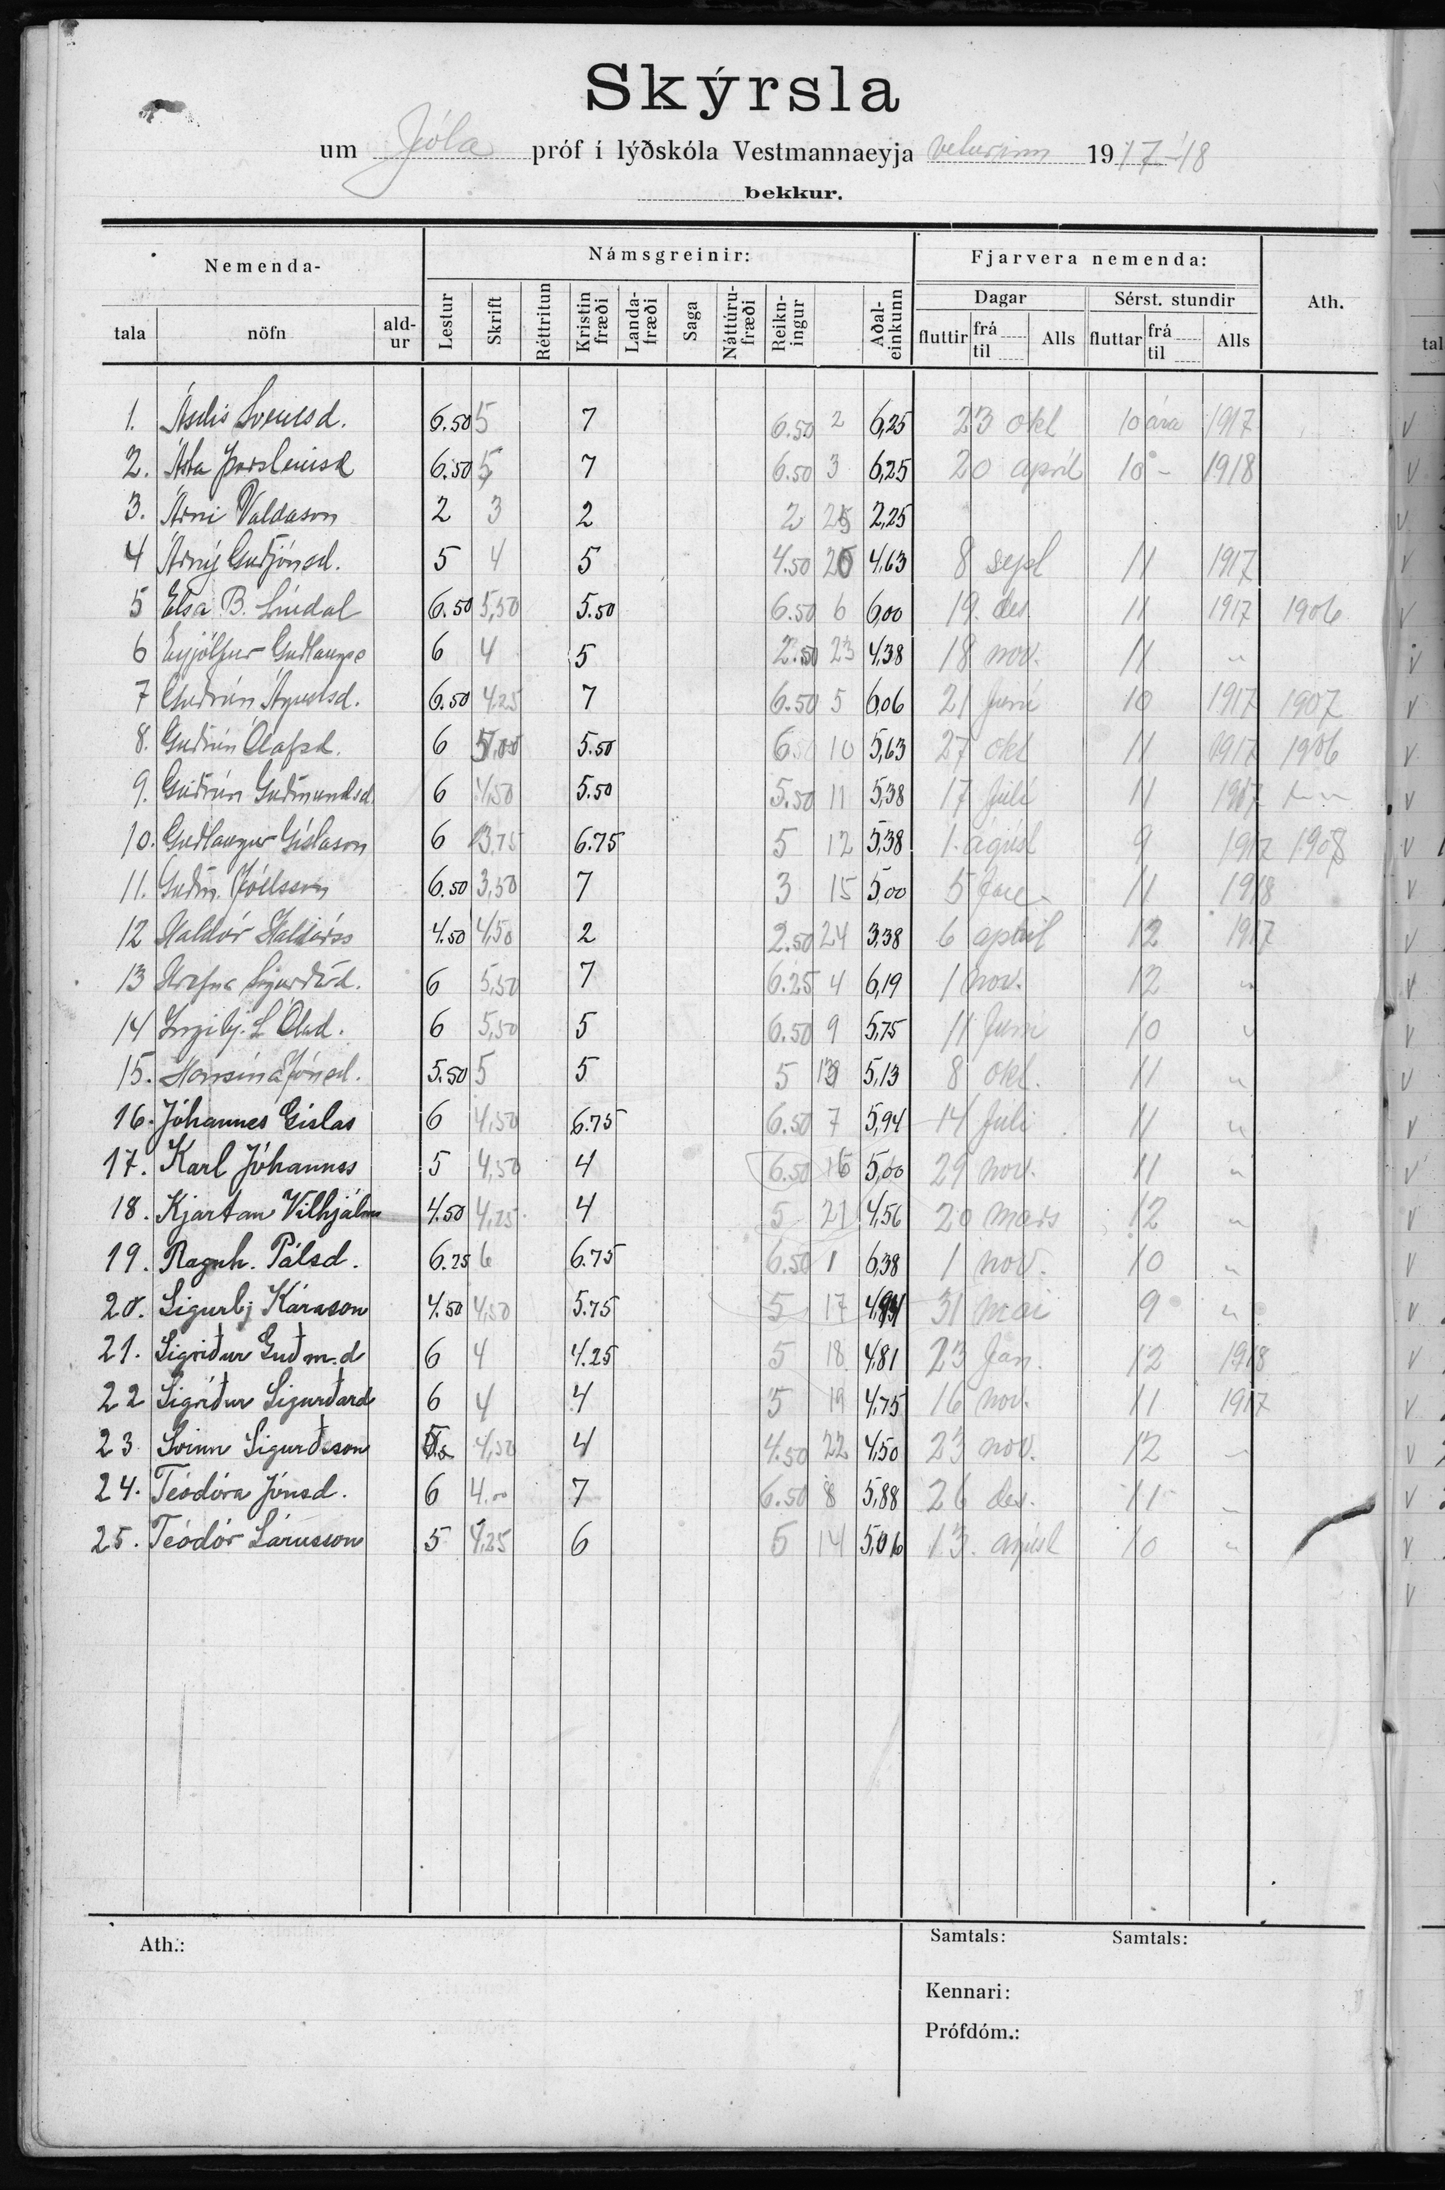 Skýrsla
um Jóla próf í lýðskóla Vestmannaeyja veturinn 1917-18
bekkur.
Nemenda- Námsgreinir: Fjarvera nemenda: Ath.
Dagar Sérst. stundir
tala nöfn ald-ur Lestur Skrift Réttritun Kristin fræði Landa-fræði Saga Náttúru-fræði Reikn-ingur Aðal-einkunn fluttir frá til Alls fluttar frá til Alls
1. Ásdís Sveinsd. 6.50 5 7 6.50 2 6,25 23 okt 10 ára 1917
2. Ásta Þorsteinsd 6.50 5 7 6.50 3 6,25 20 apríl 10 - 1918
3. Árni Valdason 2 3 2 2 25 2,25
4 Árný Guðjónsd. 5 4 5 4.50 20 4,63 8 sept 11 1917
5 Elsa B. Líndal 6.50 5,50 5.50 6.50 6 6,00 19. des. 11 1917 1906
6 Eyjólfur Guðlaugss 6 4 5 2.50 23 4,38 18 nov. 11 "
7 Guðrún Ágústsd. 6.50 4.25 7 6.50 5 6,06 21 Júní 10 1917 1907
8. Guðrún Ólafsd. 6 5,00 5.50 6 10 5,63 27 okt 11 1917 1906
9. Guðrún Guðmundsd 6 4,50 5.50 5.50 11 5,38 17 Júlí 11 1917
10. Guðlaugur Gíslason 6 3.75 6.75 5 12 5,38 1. ágúst 9 1917 1908
11. Guðm. Jóelsson 6.50 3,50 7 3 15 5,00 5 11 1918
12 Haldór Haldórss 4.50 4,50 2 2.50 24 3,38 6 apríl 12 1917
13 Hrefna Sigurðard. 6 5,50 7 6.25 4 6,19 1 nov. 12 "
14 Ingibj. Ólafsd. 6 5,50 5 6.50 9 5,75 11 Júní 10 "
15. Jónsd. 5.50 5 5 5 13 5,13 8 okt. 11 "
16. Jóhannes Gíslas 6 4,50 6.75 6.50 7 5,94 14 Júlí 11 "
17. Karl Jóhannss 5 4,50 4 6.50 16 5,00 29 nov. 11 "
18. Kjartan Vilhjálms 4.50 4,25 4 5 21 4,56 20 mars 12 "
19. Ragnh. Pálsd. 6.25 6 6.75 6.50 1 6,38 1 nov. 10 "
20. Sigurbj Kárason 4.50 4,50 5.75 5 17 4,94 31 maí 9 "
21. Sigríður Guðm.d 6 4 4.25 5 18 4,81 23 Jan. 12 1918
22 Sigríður Sigurðard 6 4 4 5 19 4,75 16 nov. 11 1917
23 Sveinn Sigurðsson 4,50 4 4.50 22 4,50 23 nov. 12 "
24. Teódóra Jónsd. 6 4.00 7 6.50 8 5,88 26 des. 11 "
25. Teódór Lárusson 5 4,25 6 5 14 5,06 13. ágúst 10 "
Ath.: Samtals: Samtals:
Kennari:
Prófdóm.: